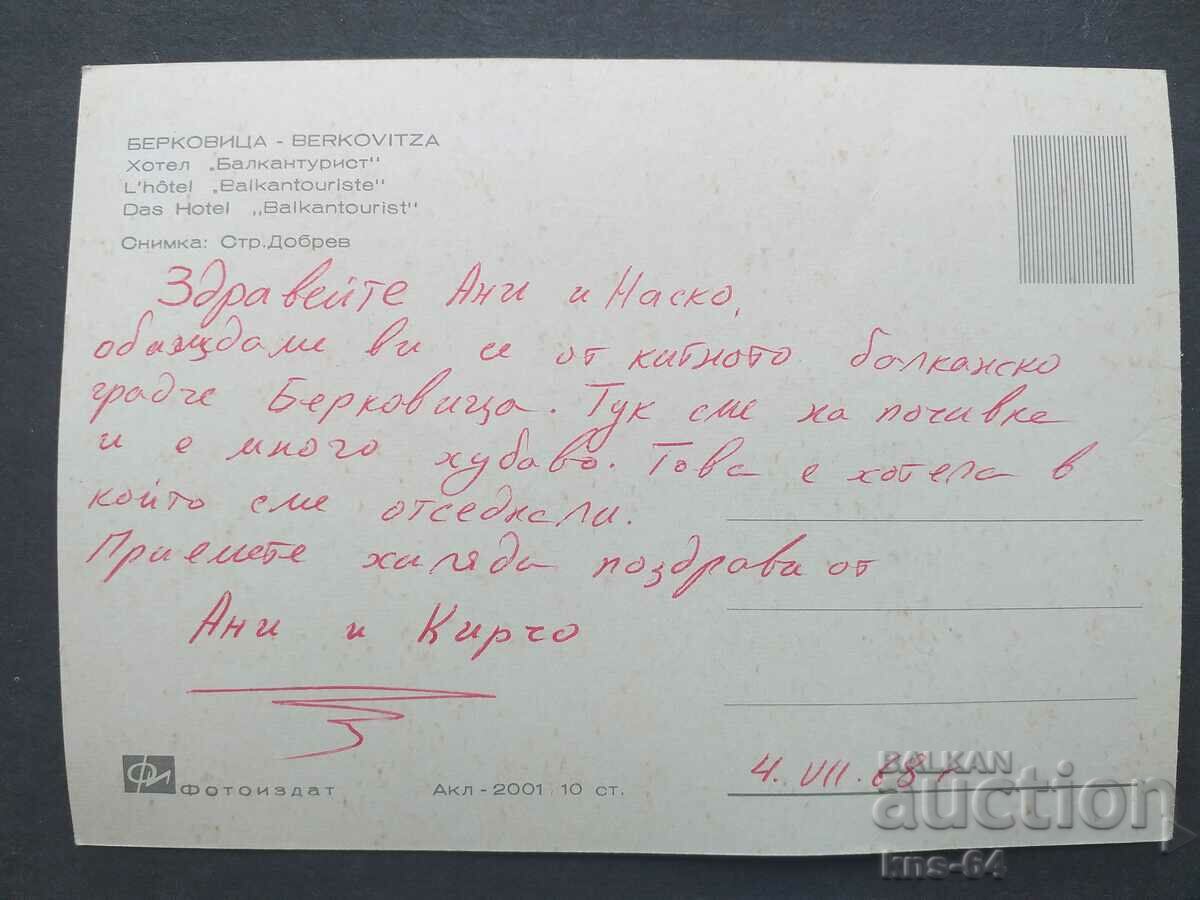 БЕРКОВИЦА - BERKOVITZA
Хотел „Балкантурист"
L'hôtel „Balkantouriste"
Das Hotel „Balkantourist"
Снимка: Стр.Добрев
Здравейте Ани и Наско,
обаждаме ви се от китното балканско
градче Берковица. Тук сме на почивка
и е много хубаво. Това е хотела в
който сме отседнали.
Приемете хиляда поздрава от
Ани и Кирчо
4. VII. 68 г
Фотоиздат
Акл - 2001 10 ст.
BALKAN
auction
kns-64